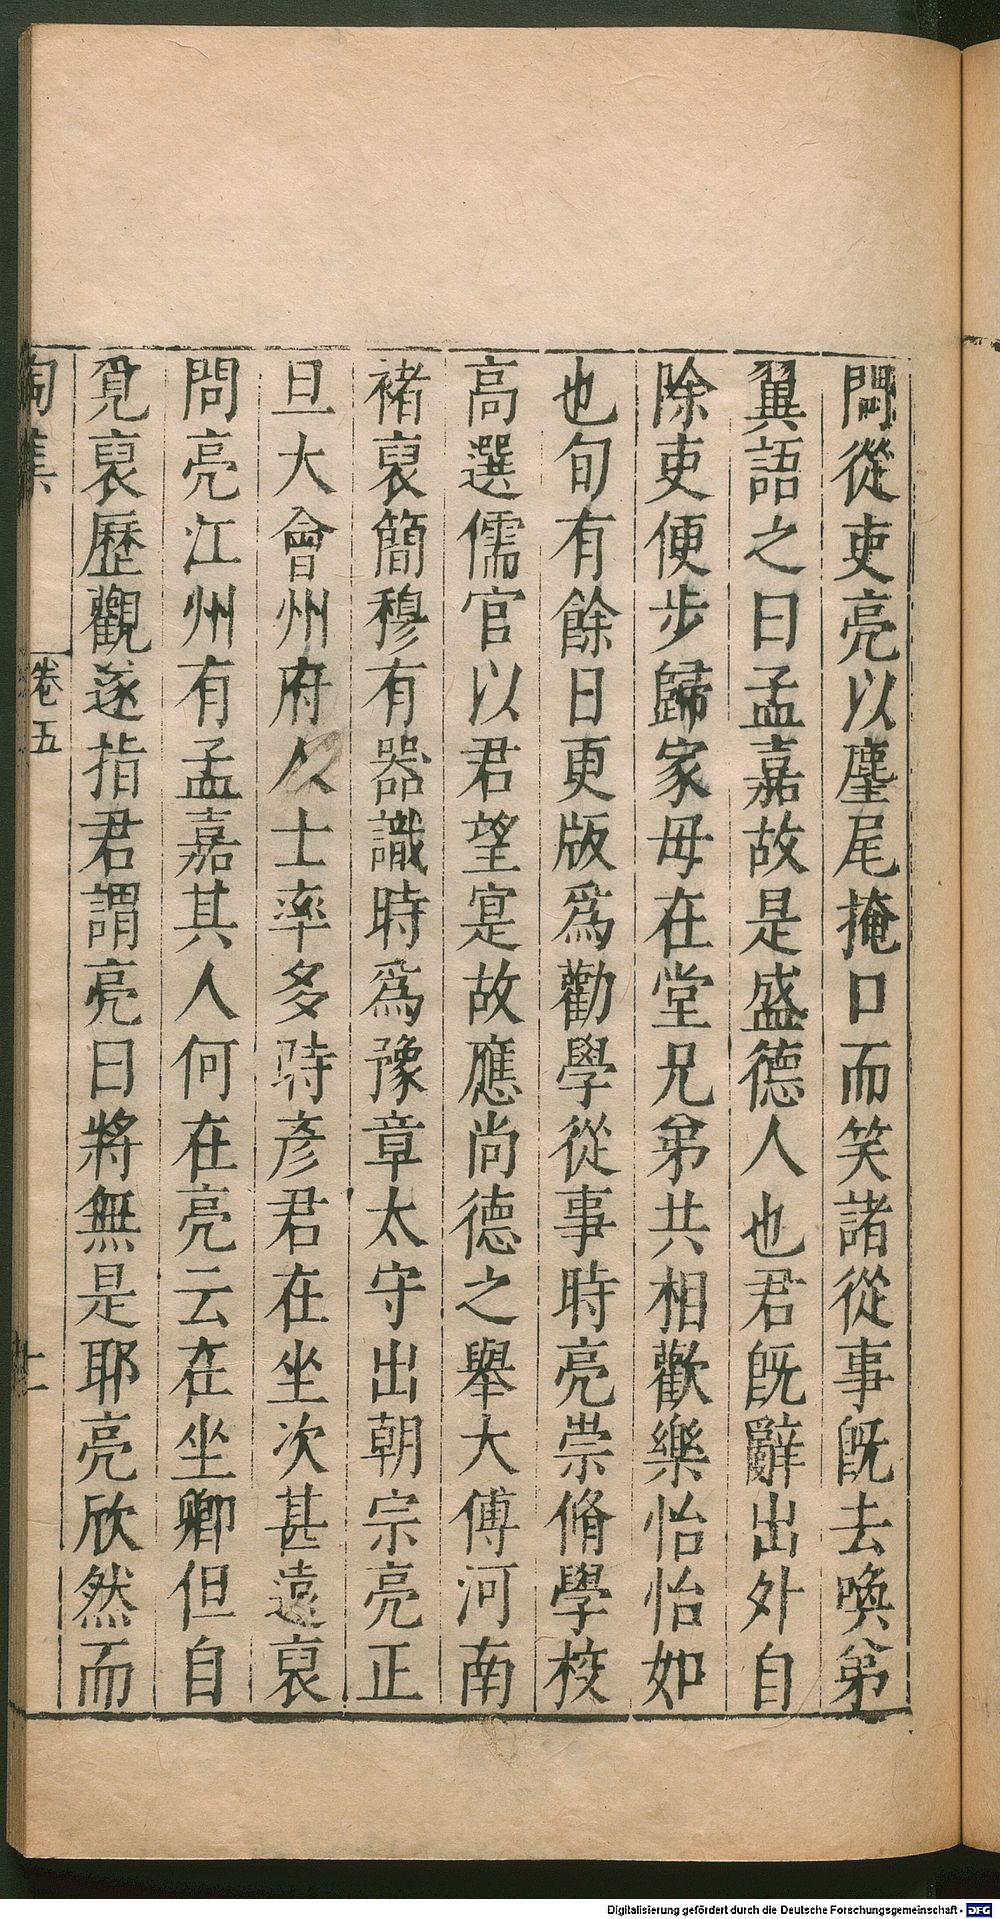 問從吏亮以麈尾掩口而笑諸從事既去喚弟
翼語之曰孟嘉故是盛德人也君既辭出外自
除吏便步歸家母在堂兄弟共相歡樂怡怡如
也旬有餘日更版爲勸學從事時亮崇脩學校
高選儒官以君望寔故應尚德之舉大傅河南
褚裒簡穆有器識時爲豫章太守出朝宗亮正
旦大會州府人士率多時彥君在坐次甚遠裒
問亮江州有孟嘉其人何在亮云在坐卿但自
覓裒歷觀遂指君謂亮曰將無是耶亮欣然而
陶集 卷五
Digitalisierung gefördert durch die Deutsche Forschungsgemeinschaft - DFG